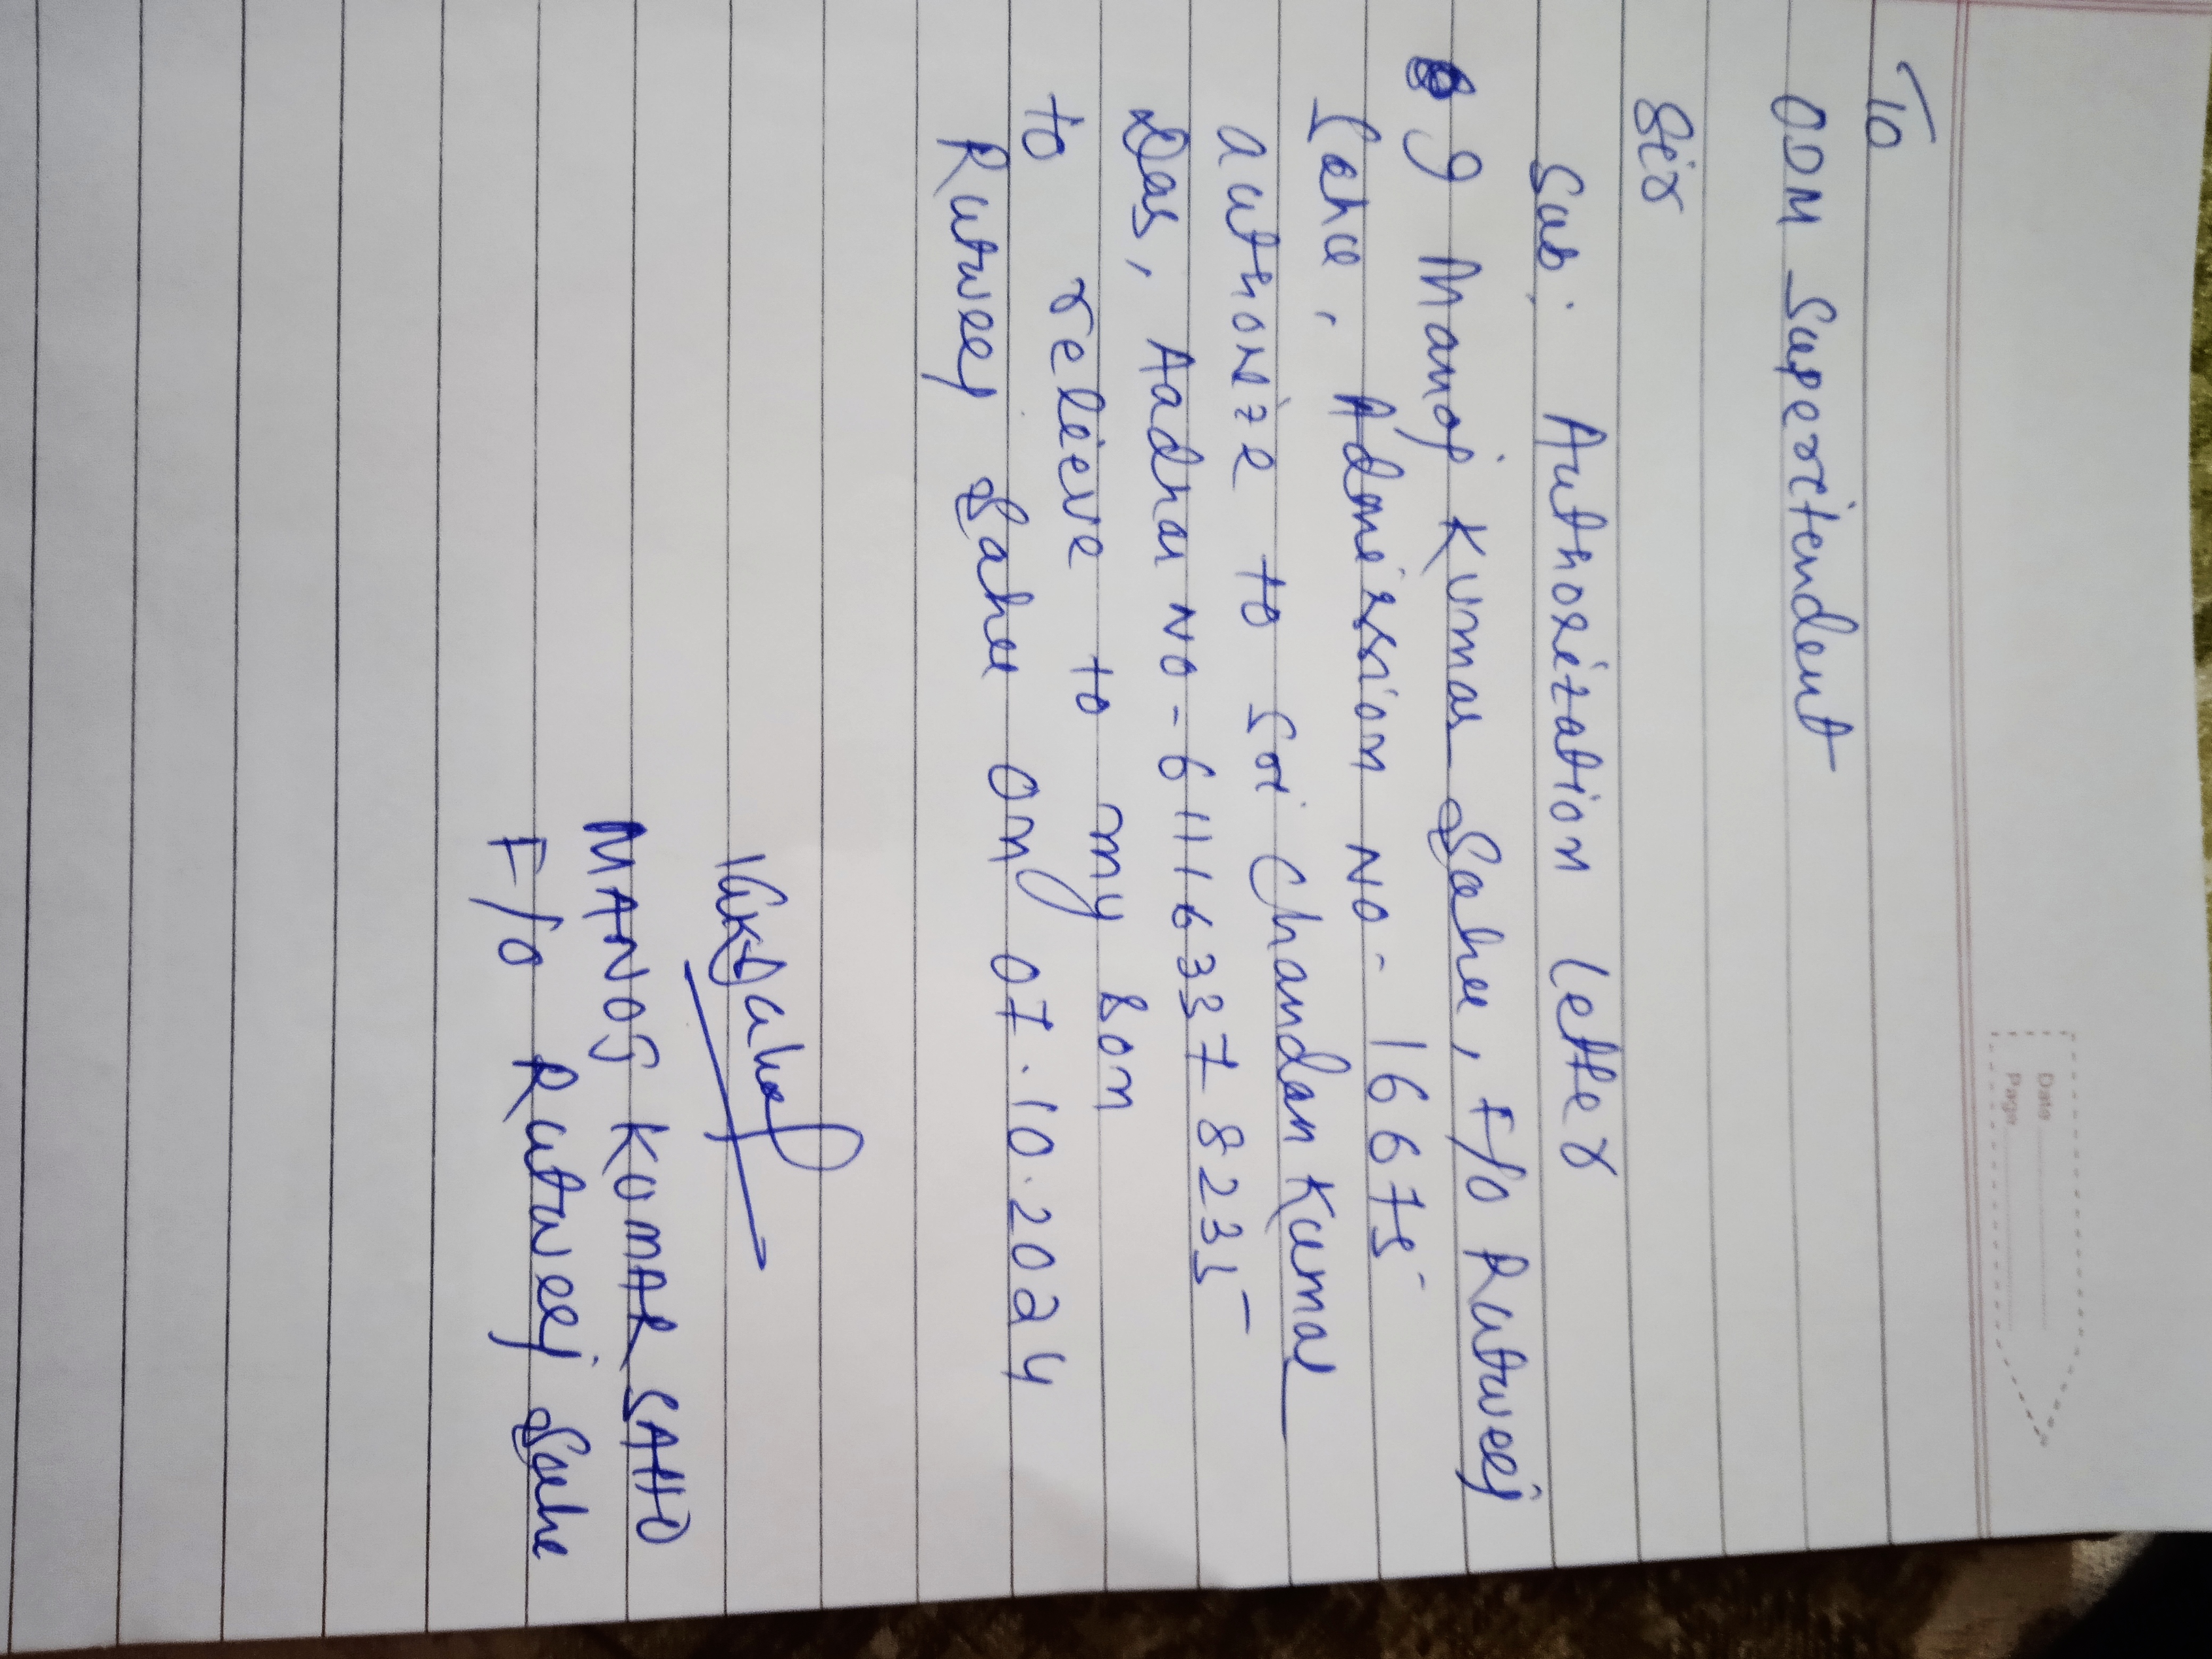 Date
Page
To
ODM Superitendent
Sir
Sub: Authorization letter
I Manoj Kumar Sahu, F/o Rutweej
Sahu, Admission No- 16675
authorize to Sri Chandan Kumar
Das, Aadhar No-611163378235
to relieve to my son
Rutweej Sahu on 07.10.2024
MANOJ KUMAR SAHU
F/o Rutweej Sahu